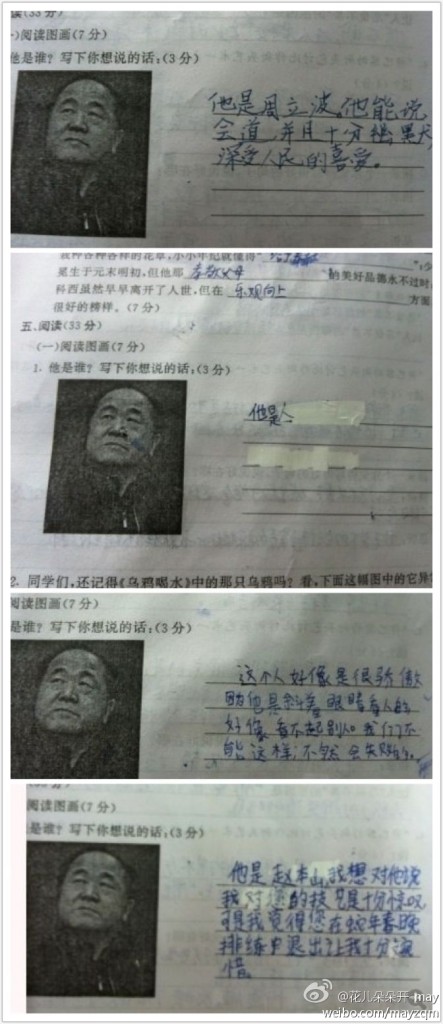 读(33分)
)阅读图画(7分)
他是谁?写下你想说的话:(3分)
他是周立波,他能说
会道,并且十分幽默,
深受人民的喜爱。
我种各种各样的花草,小小年纪就懂得"
冕生于元末明初,但他那 孝敬父母 "的美好品德永不过时;
科西虽然早早离开了人世,但在 乐观向上 方面
很好的榜样。(7分)
五、阅读(33分)
(一)阅读图画(7分)
1. 他是谁?写下你想说的话:(3分)
他是
2. 同学们,还记得《乌鸦喝水》中的那只乌鸦吗?看,下面这幅图中的它异
阅读图画(7分)
是谁?写下你想说的话:(3分)
这个人好像是很骄傲
的他是斜着眼睛看人的
好像看不起别人。我们不
能这样,不然会失败的。
阅读图画(7分)
是谁?写下你想说的话:(3分)
他是赵本山,我想对他说
我对您的技艺是十分惊叹
可是我觉得您在蛇年春晚
排练中退出让我十分惋
惜。
@花儿朵朵开-may
weibo.com/mayzqm